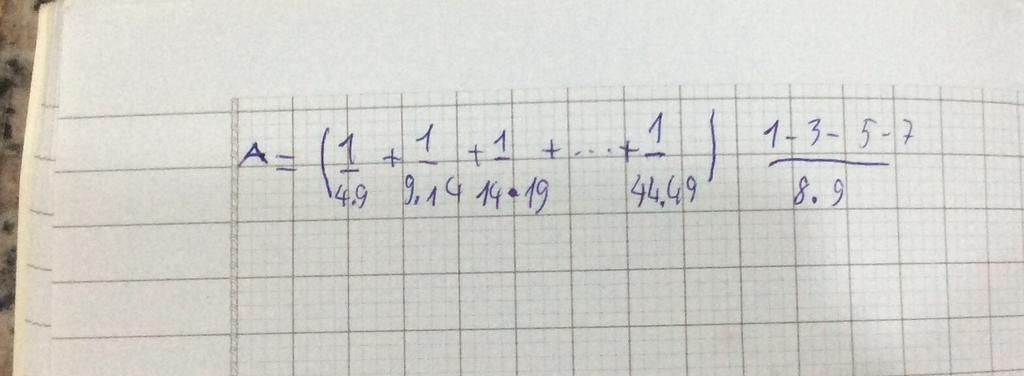 A = ( 1/4.9 + 1/9.14 + 1/14.19 + ... + 1/44.49 ) 1-3-5-7/8.9